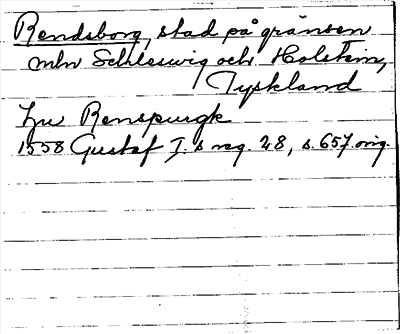 Rendsborg, stad på gränsen
mln Schleswig och Holstein,
Tyskland
Zu Renspurgk
1558 Gustaf I.s reg. 28, s. 657 orig.